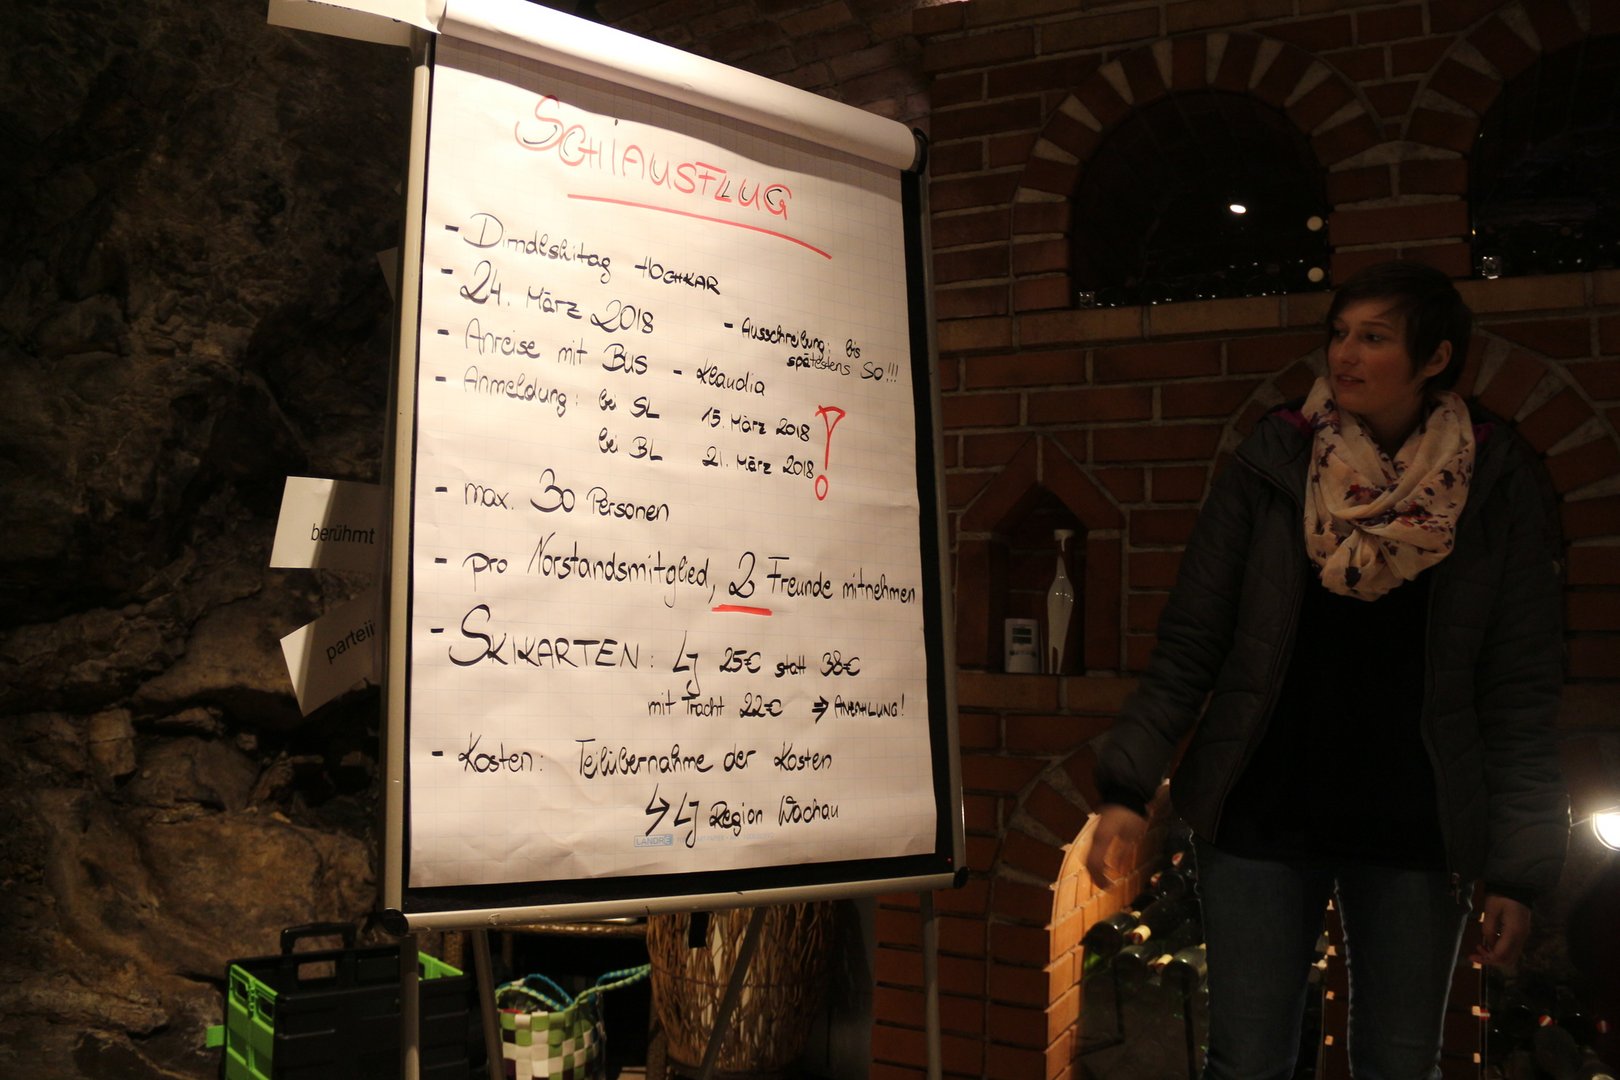 SCHIAUSFLUG
- Dirndlskitag HOCHKAR
- 24. März 2018
- Ausschreibung: bis
spätestens SO!!!
- Anreise mit BUS - Klaudia
- Anmeldung: bei SL 15. März 2018
bei BL 21. März 2018 !
- max. 30 Personen
- pro Vorstandsmitglied, 2 Freunde mitnehmen
- SKIKARTEN: LJ 25€ statt 38€
mit Tracht 22€ ⇒ ANZAHLUNG!
- Kosten: Teilübernahme der Kosten
↳ LJ Region Wachau
LANDRÉ
berühmt
parteii